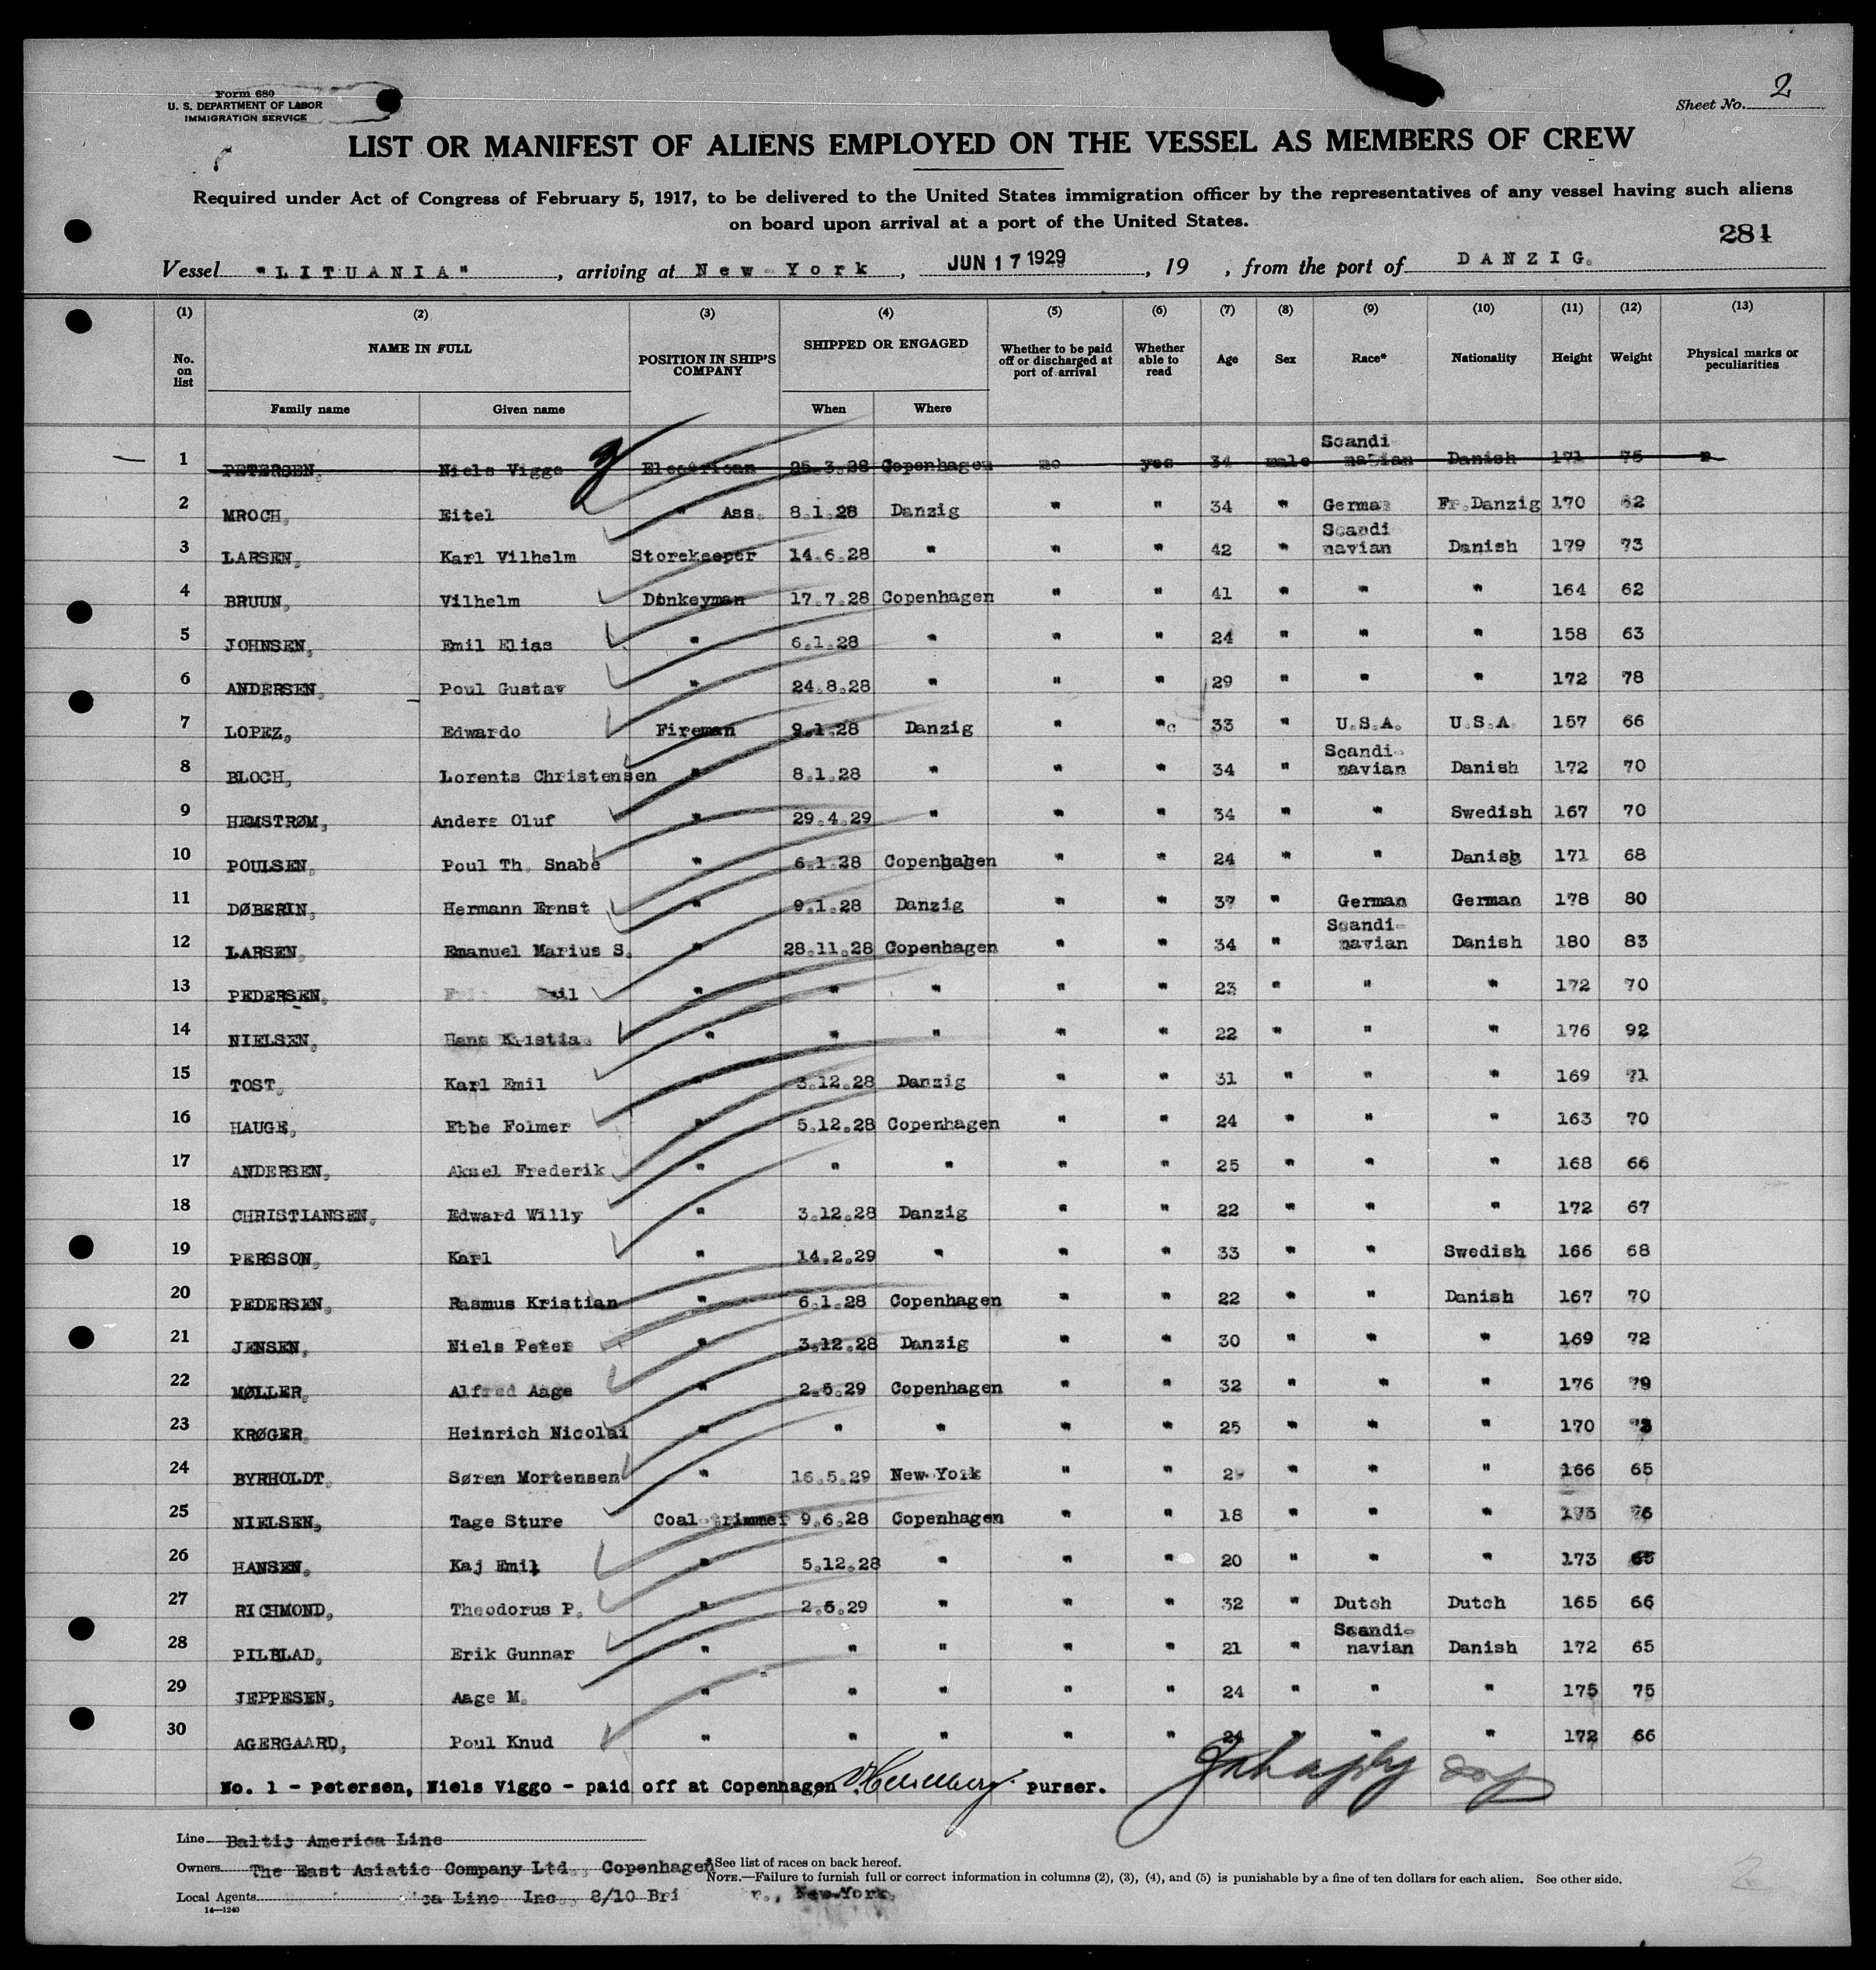 Form 680
U. S. DEPARTMENT OF LABOR
IMMIGRATION SERVICE
Sheet No. 2
LIST OR MANIFEST OF ALIENS EMPLOYED ON THE VESSEL AS MEMBERS OF CREW
Required under Act of Congress of February 5, 1917, to be delivered to the United States immigration officer by the representatives of any vessel having such aliens
on board upon arrival at a port of the United States.
281
Vessel "LITUANIA", arriving at New York, JUN 17 1929, 19 , from the port of DANZIG.
(1) (2) (3) (4) (5) (6) (7) (8) (9) (10) (11) (12) (13)
No. on list NAME IN FULL POSITION IN SHIP'S COMPANY SHIPPED OR ENGAGED Whether to be paid off or discharged at port of arrival Whether able to read Age Sex Race* Nationality Height Weight Physical marks or peculiarities
Family name Given name When Where
1 PETERSEN, Niels Viggo Electrican 25.3.28 Copenhagen no yes 34 male Scandinavian Danish 171 75
2 MROCH, Eitel " Ass. 8.1.28 Danzig " " 34 " German Fr.Danzig 170 62
3 LARSEN, Karl Vilhelm Storekeeper 14.6.28 " " " 42 " Scandinavian Danish 179 73
4 BRUUN, Vilhelm Donkeyman 17.7.28 Copenhagen " " 41 " " " 164 62
5 JOHNSEN, Emil Elias " 6.1.28 " " " 24 " " " 158 63
6 ANDERSEN, Poul Gustav " 24.8.28 " " " 29 " " " 172 78
7 LOPEZ, Edwardo Fireman 9.1.28 Danzig " " 33 " U.S.A. U.S.A 157 66
8 BLOCH, Lorents Christensen " 8.1.28 " " " 34 " Scandi-navian Danish 172 70
9 HEMSTRØM, Anders Oluf " 29.4.29 " " " 34 " " Swedish 167 70
10 POULSEN, Poul Th. Snabe " 6.1.28 Copenhagen " " 24 " " Danish 171 68
11 DØBERIN, Hermann Ernst " 9.1.28 Danzig " " 37 " German German 178 80
12 LARSEN, Emanuel Marius S. " 28.11.28 Copenhagen " " 34 " Scandi-navian Danish 180 83
13 PEDERSEN, Emil " " " " " 23 " " " 172 70
14 NIELSEN, Hans Kristian " " " " " 22 " " " 176 92
15 TOST, Karl Emil " 3.12.28 Danzig " " 31 " " " 169 71
16 HAUGE, Ebbe Folmer " 5.12.28 Copenhagen " " 24 " " " 163 70
17 ANDERSEN, Aksel Frederik " " " " " 25 " " " 168 66
18 CHRISTIANSEN, Edward Willy " 3.12.28 Danzig " " 22 " " " 172 67
19 PERSSON, Karl " 14.2.29 " " " 33 " " Swedish 166 68
20 PEDERSEN, Rasmus Kristian " 6.1.28 Copenhagen " " 22 " " Danish 167 70
21 JENSEN, Niels Peter " 3.12.28 Danzig " " 30 " " " 169 72
22 MØLLER, Alfred Aage " 2.5.29 Copenhagen " " 32 " " " 176 79
23 KRØGER, Heinrich Nicolai " " " " " 25 " " " 170
24 BYRHOLDT, Søren Mortensen " 16.5.29 New York " " 29 " " " 166 65
25 NIELSEN, Tage Sture Coal trimmer 9.6.28 Copenhagen " " 18 " " " 175 76
26 HANSEN, Kaj Emil " 5.12.28 " " " 20 " " " 173 65
27 RICHMOND, Theodorus P. " 2.5.29 " " " 32 " Dutch Dutch 165 66
28 PILBLAD, Erik Gunnar " " " " " 21 " Scandi-navian Danish 172 65
29 JEPPESEN, Aage M. " " " " " 24 " " " 175 75
30 AGERGAARD, Poul Knud " " " " " 24 " " " 172 66
No. 1 - Petersen, Niels Viggo - paid off at Copenhagen purser.
Line Baltic America Line
Owners The East Asiatic Company Ltd., Copenhagen
*See list of races on back hereof.
NOTE.—Failure to furnish full or correct information in columns (2), (3), (4), and (5) is punishable by a fine of ten dollars for each alien. See other side.
Local Agents Line Inc., 8/10 New York.
14—1240
2